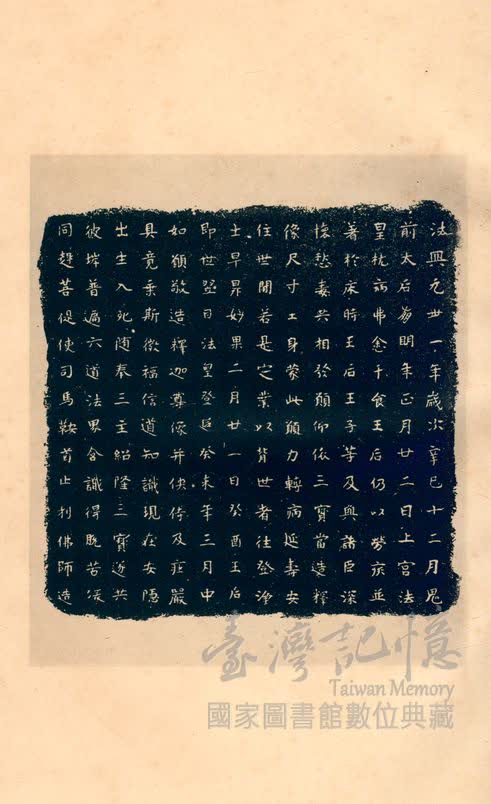 法興元卅一年歲次辛巳十二月鬼
前太后崩明年正月廿二日上宮法
皇枕病弗悆干食王后仍以勞疾並
著於床時王后王子等及與諸臣深
懷愁毒共相發願仰依三寶當造釋
像尺寸王身蒙此願力轉病延壽安
住世間若是定業以背世者往登淨
土早昇妙果二月廿一日癸酉王后
即世翌日法皇登遐癸未年三月中
如願敬造釋迦尊像并俠侍及莊嚴
具竟乘斯微福信道知識現在安隱
出生入死隨奉三主紹隆三寶遂共
彼岸普遍六道法界含識得脫苦緣
同趣菩提使司馬鞍首止利佛師造
臺灣記憶
Taiwan Memory
國家圖書館數位典藏